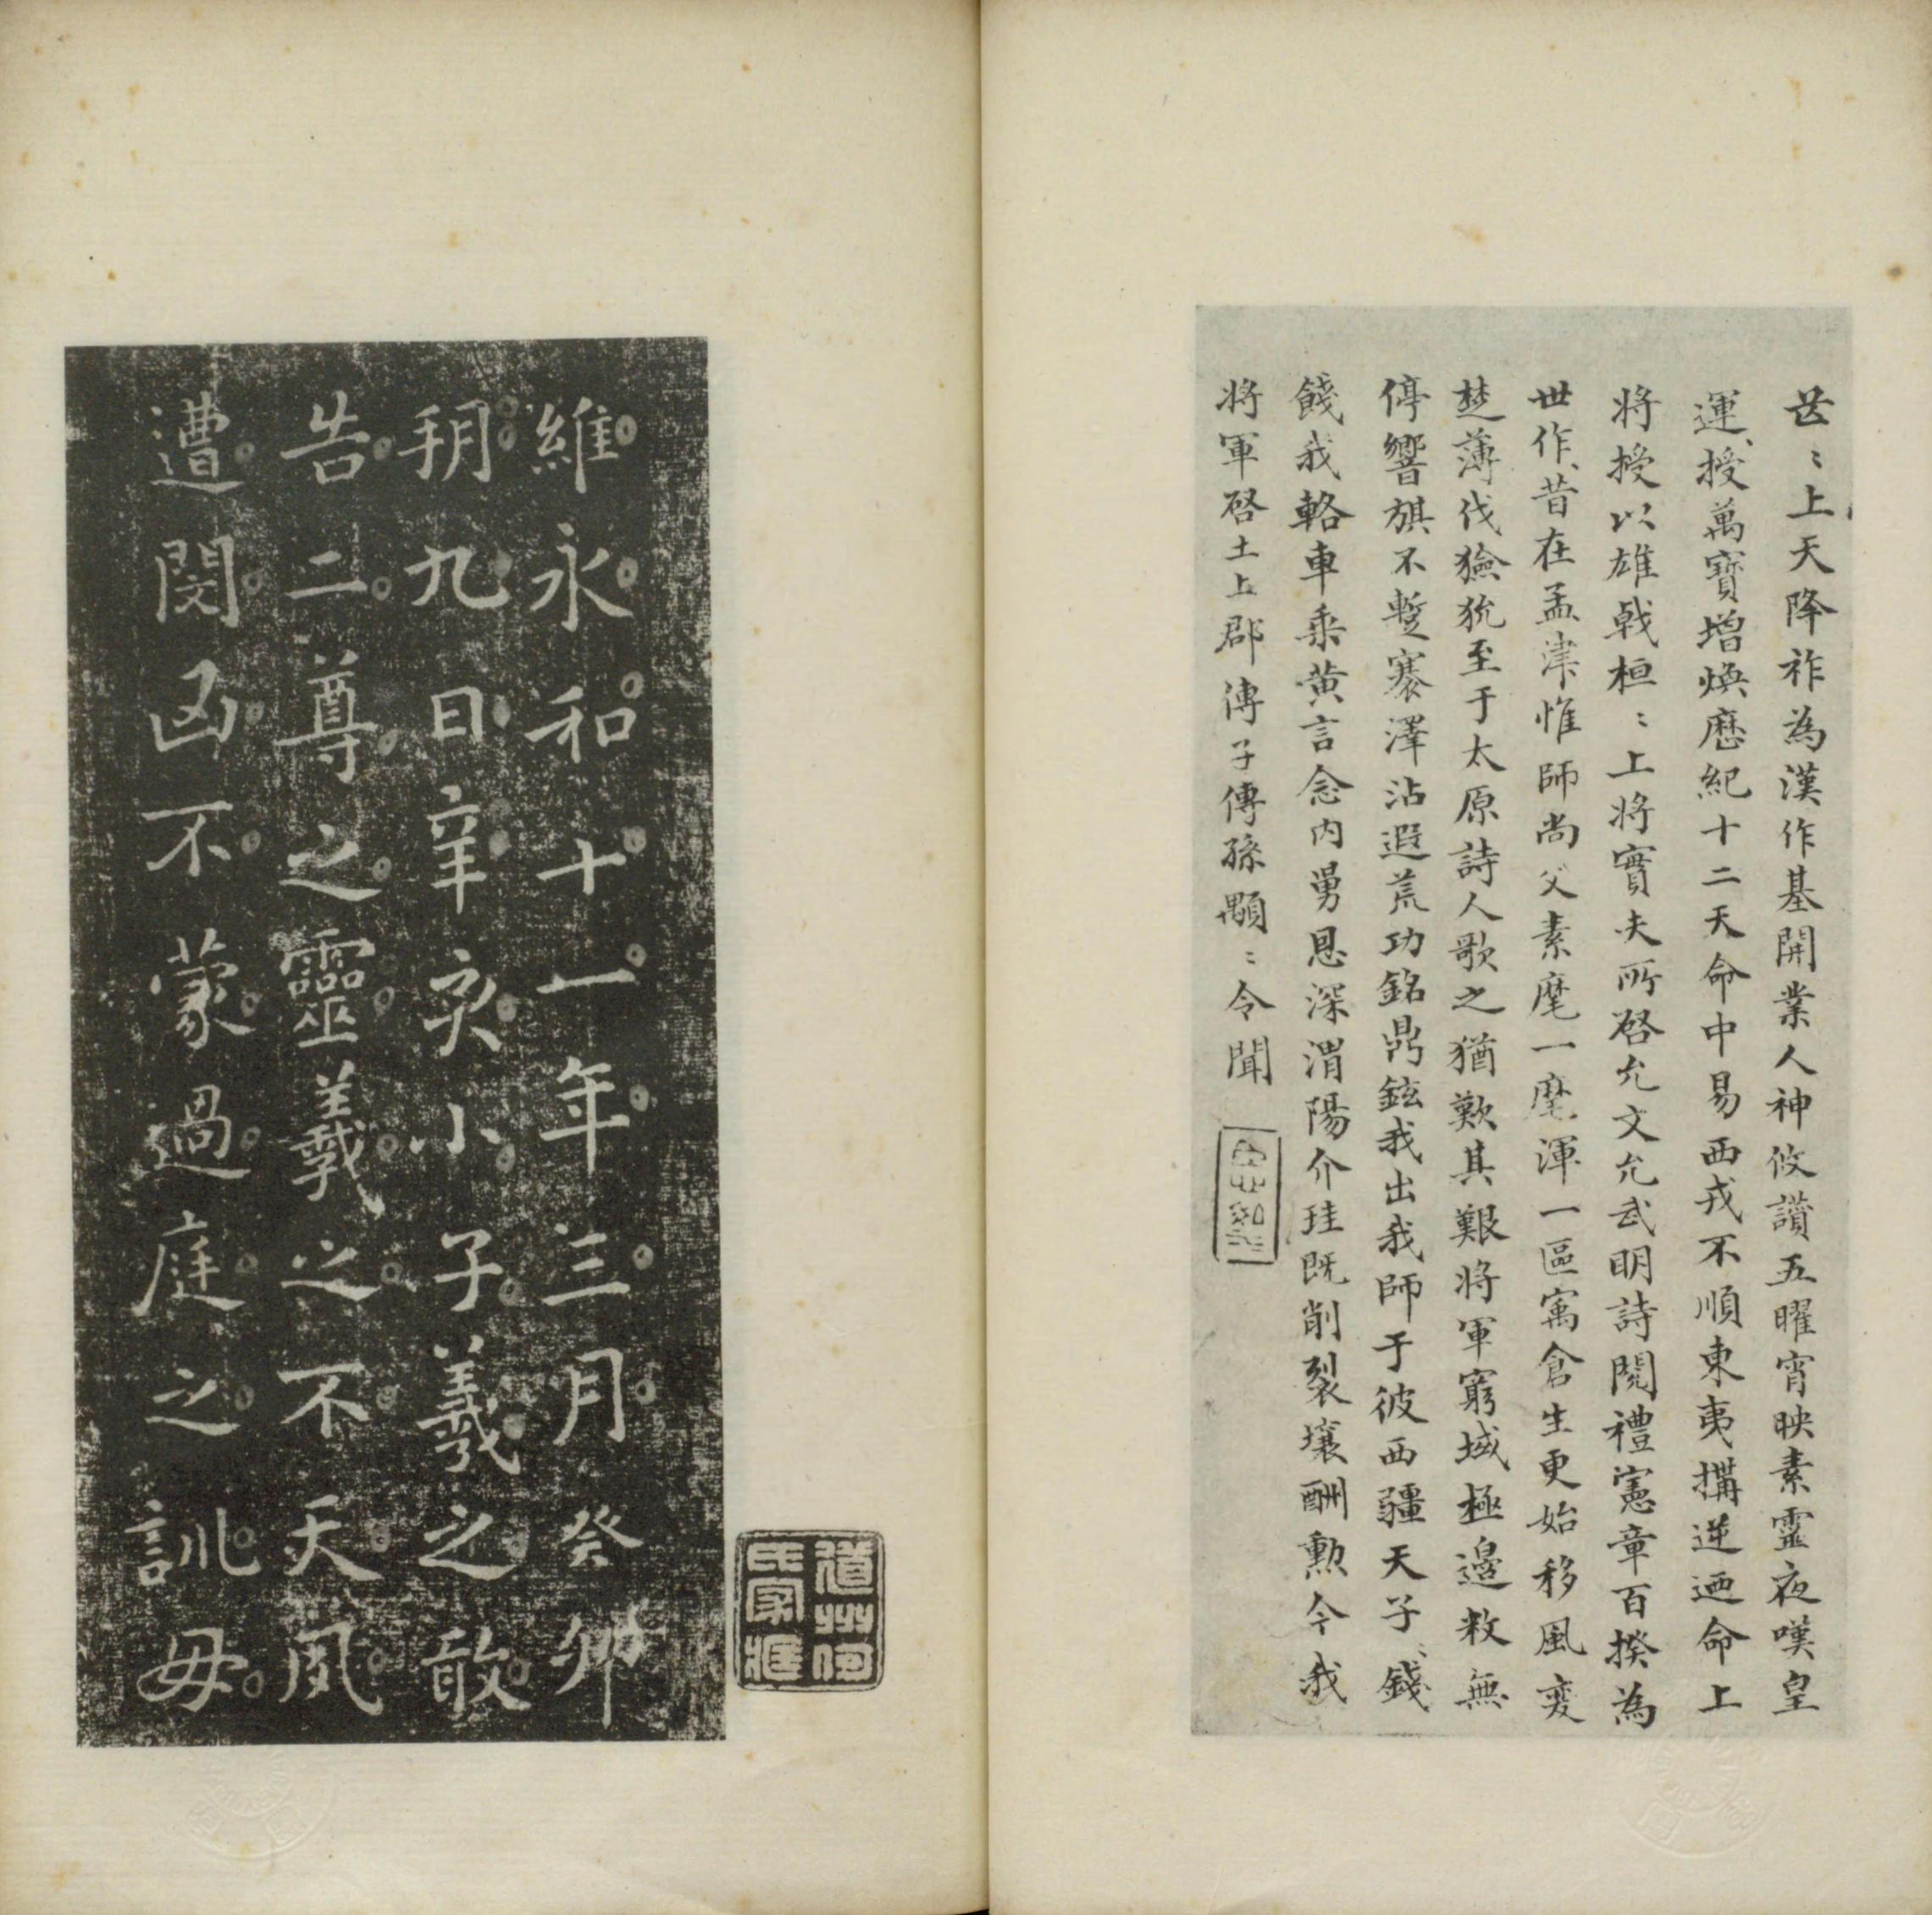 芒〻上天降祚為漢作基開業人神攸讚五曜宵映素靈夜嘆皇
運授萬寶增煥歷紀十二天命中易西戎不順東夷搆逆迺命上
將授以雄戟桓〻上將寔夫所啓允文允武明詩閱禮憲章百揆為
世作昔在孟津惟師尚父素麾一麾渾一區寓倉生更始移風變
楚薄伐獫狁至于太原詩人歌之猶歎其艱將軍窮域極邊敕無
停響旗不蹔褰澤沾遐荒功銘鼎鉉我出我師于彼西疆天子〻餞
餞我輅車乘黃言念內舅恩深渭陽介珪既削裂壤酬勳今我
將軍啓土上郡傳子傳孫顯〻令聞
道州何氏家藏
維永和十一年三月癸卯
朔九日辛亥小子羲之敢
告二尊之靈羲之不天夙
遭閔凶不蒙過庭之訓母